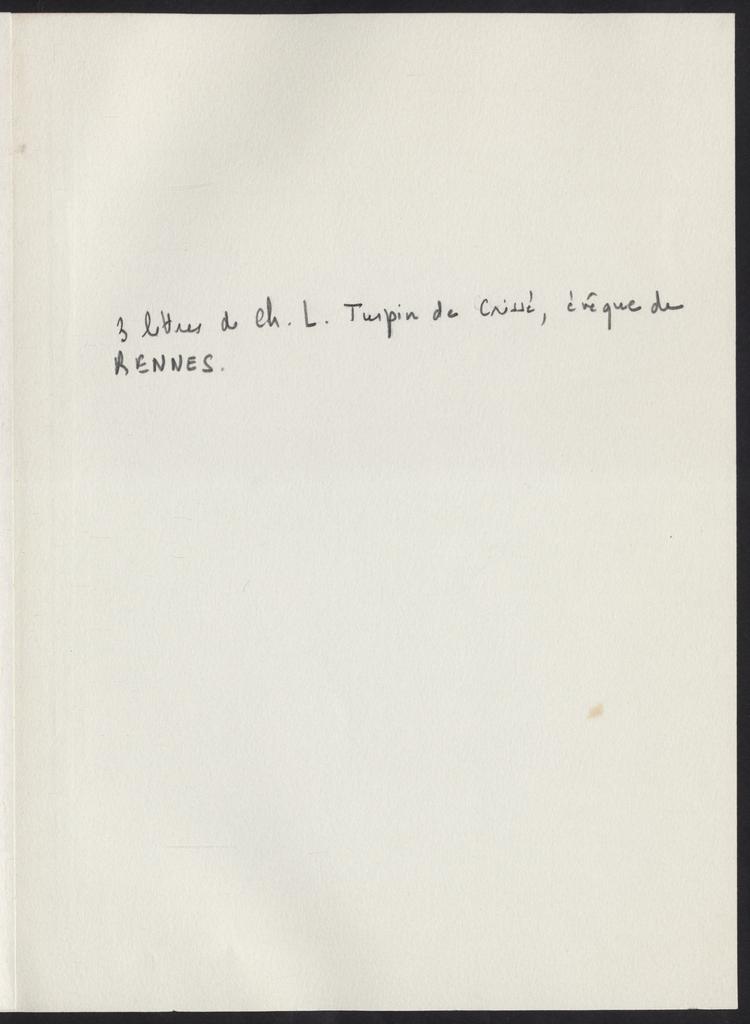 3 lettres de Ch. L. Turpin de Crissé, évêque de
RENNES.